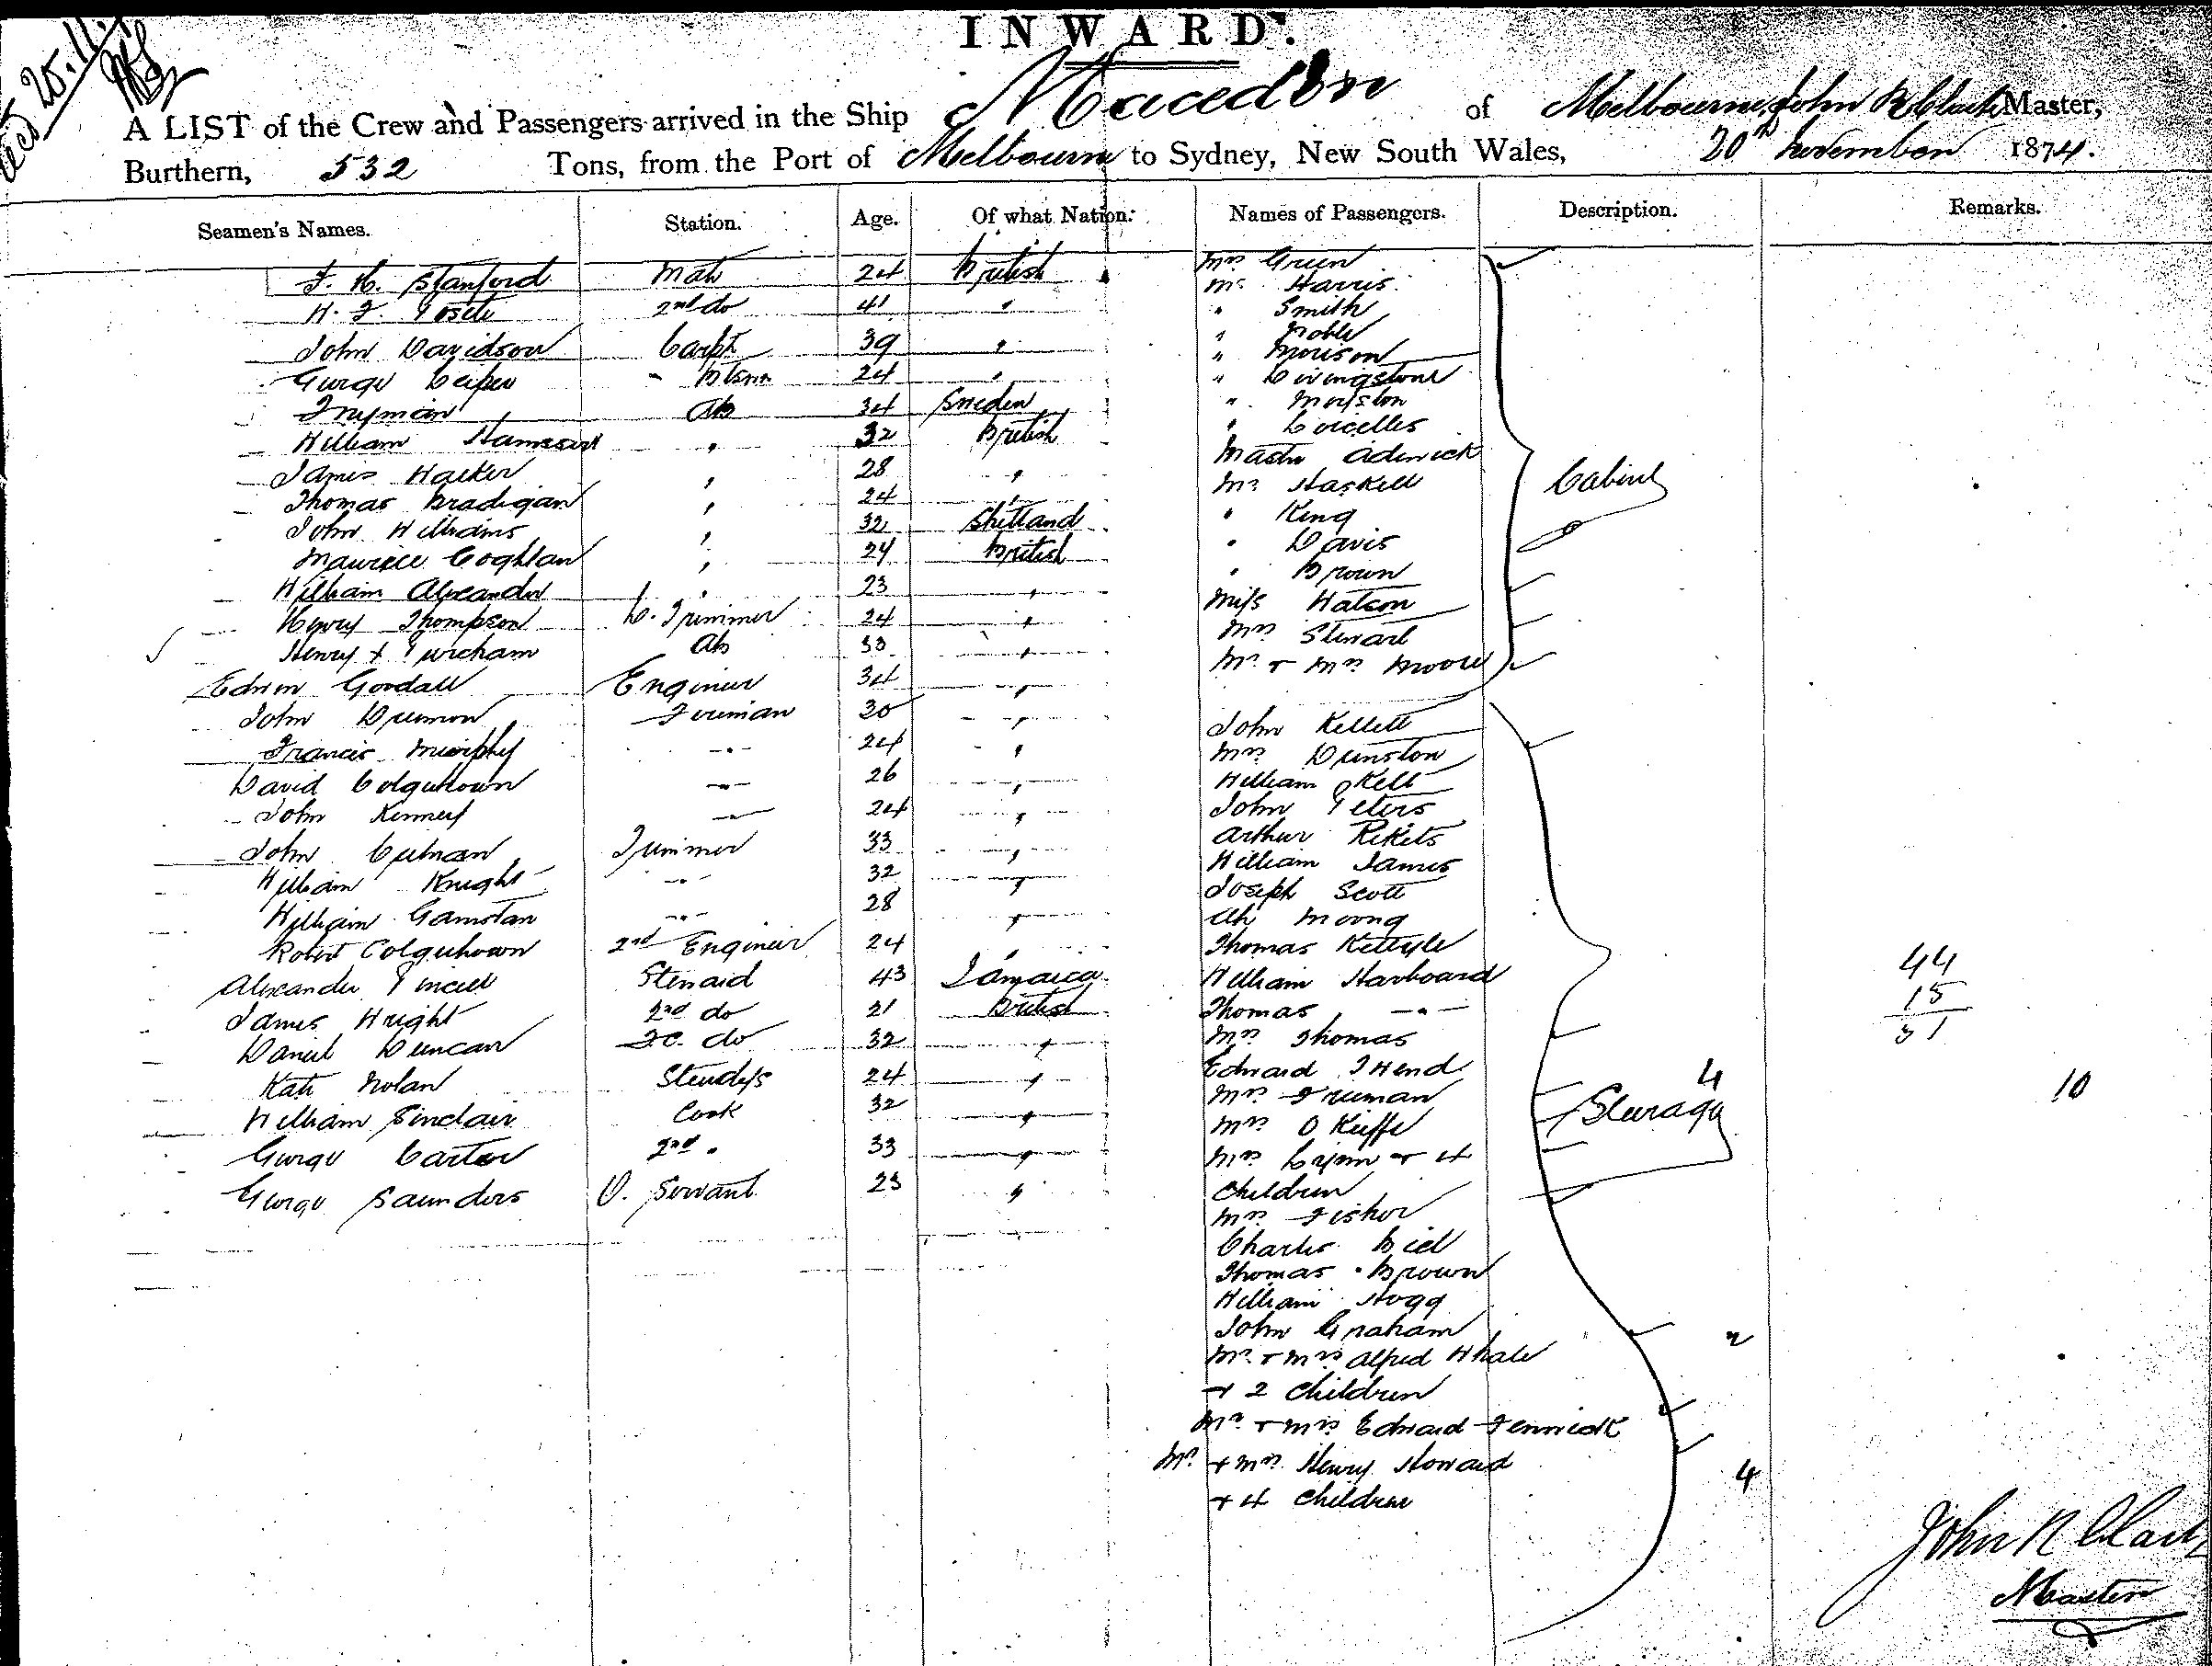 INWARD.
A LIST of the Crew and Passengers arrived in the Ship Macedon of Melbourne, John R Clark Master,
Burthern, 532 Tons, from the Port of Melbourne to Sydney, New South Wales, 20th November 1874.
Seamen's Names. Station. Age. Of what Nation. Names of Passengers. Description. Remarks.
F. H. Stanford Mate 24 British
H. F. 2nd do 41 "
John Davidson Carpt 39 "
George Leiper 24 "
Fryman Ab 34 Sweden
William " 32 British
James Walker " 28 "
Thomas Bradigan " 24 "
John Williams " 32 Shetland
Maurice Coghlan " 24 British
William Alexander " 23 "
Henry Thompson L. Trimmer 24 "
Henry Ab 33 "
Edwin Goodall Engineer 34 "
John Fireman 30 "
Francis Murphy -"- 24 "
David Colquhoun -"- 26 "
John Kenney -"- 24 "
John Trimmer 33 "
William Knight -"- 32 "
William -"- 28 "
Robert Colquhoun 2nd Engineer 24 "
Alexander Steward 43 Jamaica
James Wright 2nd do 21 British
Daniel Duncan F.C. do 32 "
Kate Nolan Stewdess 24 "
William Sinclair Cook 32 "
George Carter 2nd " 33 "
George Saunders O. Servant 23 "
Mrs Green
Mr Harris
" Smith
" Noble
" Morison
" Livingstone
"
"
Master
Mr Haskell
" King
" Davis
" Brown
Miss Watson
Mrs Stewart
Mr & Mrs Moore
Cabin
John Kellett
Mrs Dunston
William Kell
John Peters
Arthur Rikets
William James
Joseph Scott
Ah Moong
Thomas Kettyle
William Harboard
Thomas -"-
Mrs Thomas
Edward
Mrs Freeman
Mrs O Kieffe
Mrs & 4
Children
Mrs Fisher
Charles
Thomas Brown
William Hogg
John Graham
Mr & Mrs Alfred Whale
& 2 Children
Mr & Mrs Edward Fennick
Mr & Mrs Henry Howard
& 4 Children
Steerage
4
2
4
44
15
31
10
John R Clark
Master